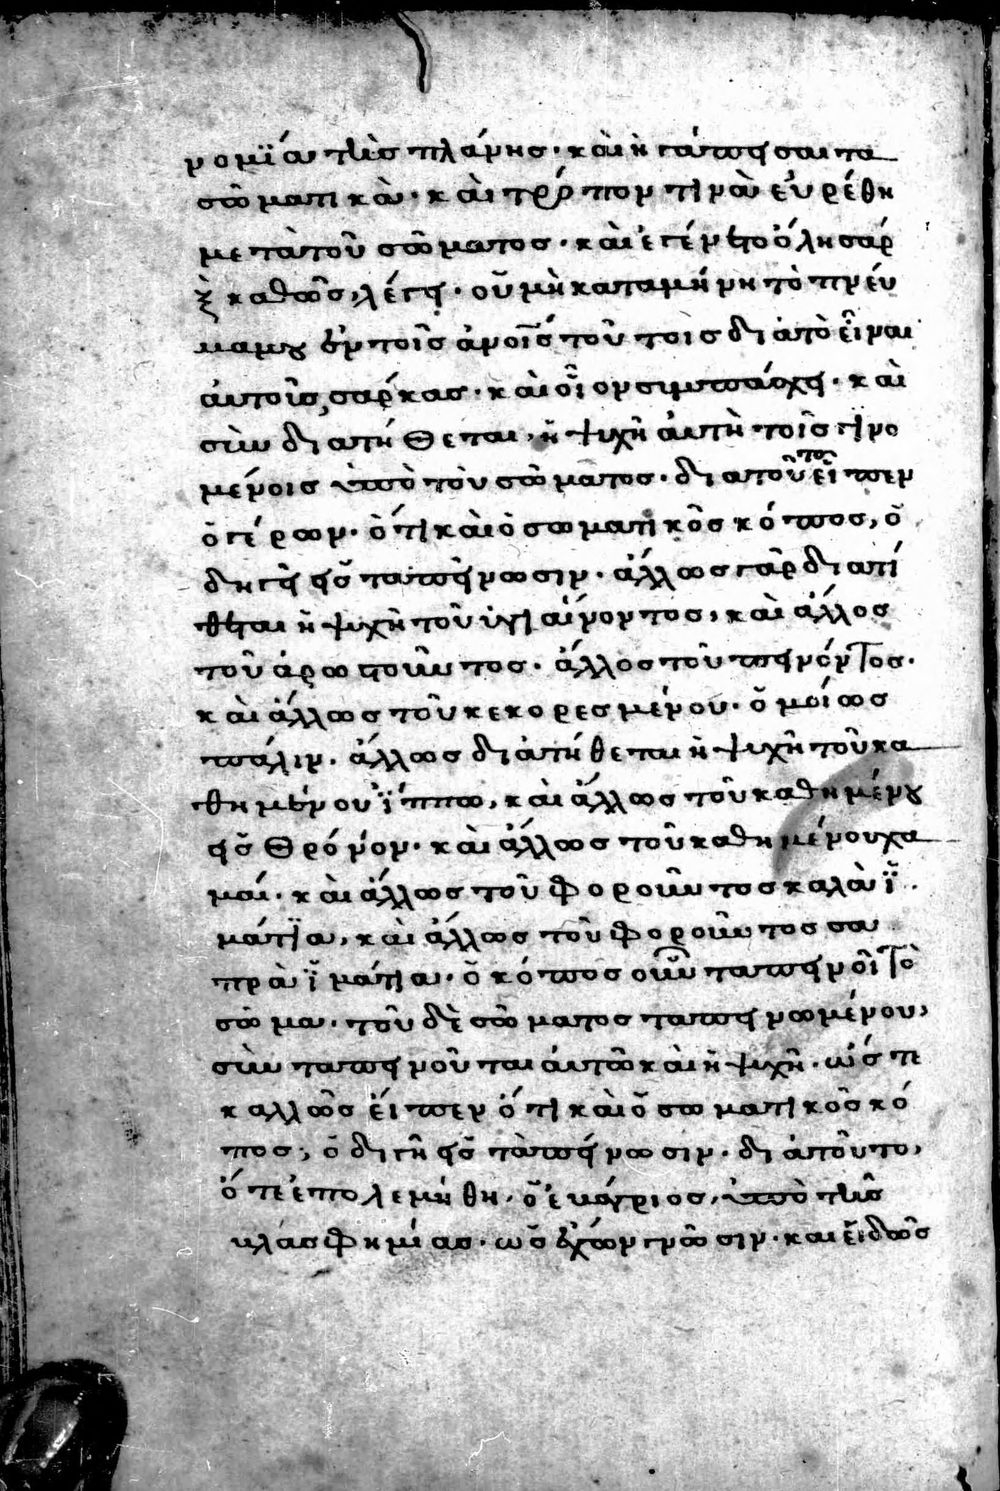 νομΐαν τῆς πλάνης· καὶ ἡ γάπησαι τα
σῶματικὰ· καὶ τρόπον τινὰ εὑρέθη
μετὰ τοῦ σῶματος· καὶ ἐγένετο ὅλη σάρ
ξ καθῶς λέγει· οὐ μὴ καταμήνη τὸ πνεύ
μα μου ἐν τοῖς ἀνοῖς τού τοις διὰ τὸ εἶναι
αὐτοὺς σάρκας· καὶ οἷον συμπάσχει· καὶ
σὺν διατήθεται, ἡ ψυχὴ αὐτὴ τοῖς γινο
μένοις ὑπὸ τοῦ σῶματος· διὰ τοῦτο εἶπεν
ὁ γέρων· ὅτι καὶ ὁ σωματικὸς κόπος, ὁ
δηγεῖ εἰς ταπείνωσιν· ἄλλως γὰρ διατί
θεται ἡ ψυχὴ τοῦ ὑγιαίνοντος, καὶ ἄλλος
τοῦ ἀρωστοῦντος· ἄλλος τοῦ πεινόντος·
καὶ ἄλλως τοῦ κεκορεσμένου· ὁμοίως
πάλιν· ἄλλως διατήθεται ἡ ψυχὴ τοῦ κα
θημένου ΐππω, καὶ ἄλλως τοῦ καθημένου
εἰς θρόνον· καὶ ἄλλως τοῦ καθημένου χα
μαί· καὶ ἄλλως τοῦ φοροῦντος καλὰ ΐ
μάτια, καὶ ἄλλως τοῦ φοροῦντος σα
πρὰ ΐμάτια· ὁ κόπος οὖν ταπεινοῖ τὸ
σῶμα· τοῦ δὲ σῶματος ταπεινωμένου,
σὺν ταπεινοῦται αὐτῶ καὶ ἡ ψυχὴ· ὥστε
καλλῶς εἶπεν ὅτι καὶ ὁ σωματικὸς κό
πος, ὁδιγῆ εἰς ταπείνωσιν· διὰ τοῦτο,
ὅτε ἐπολεμήθη, ὁ εὐάγριος, ὑπὸ τῆς
βλάσφημίας· ὡς ἔχων γνῶσιν· καὶ εἰδὼς